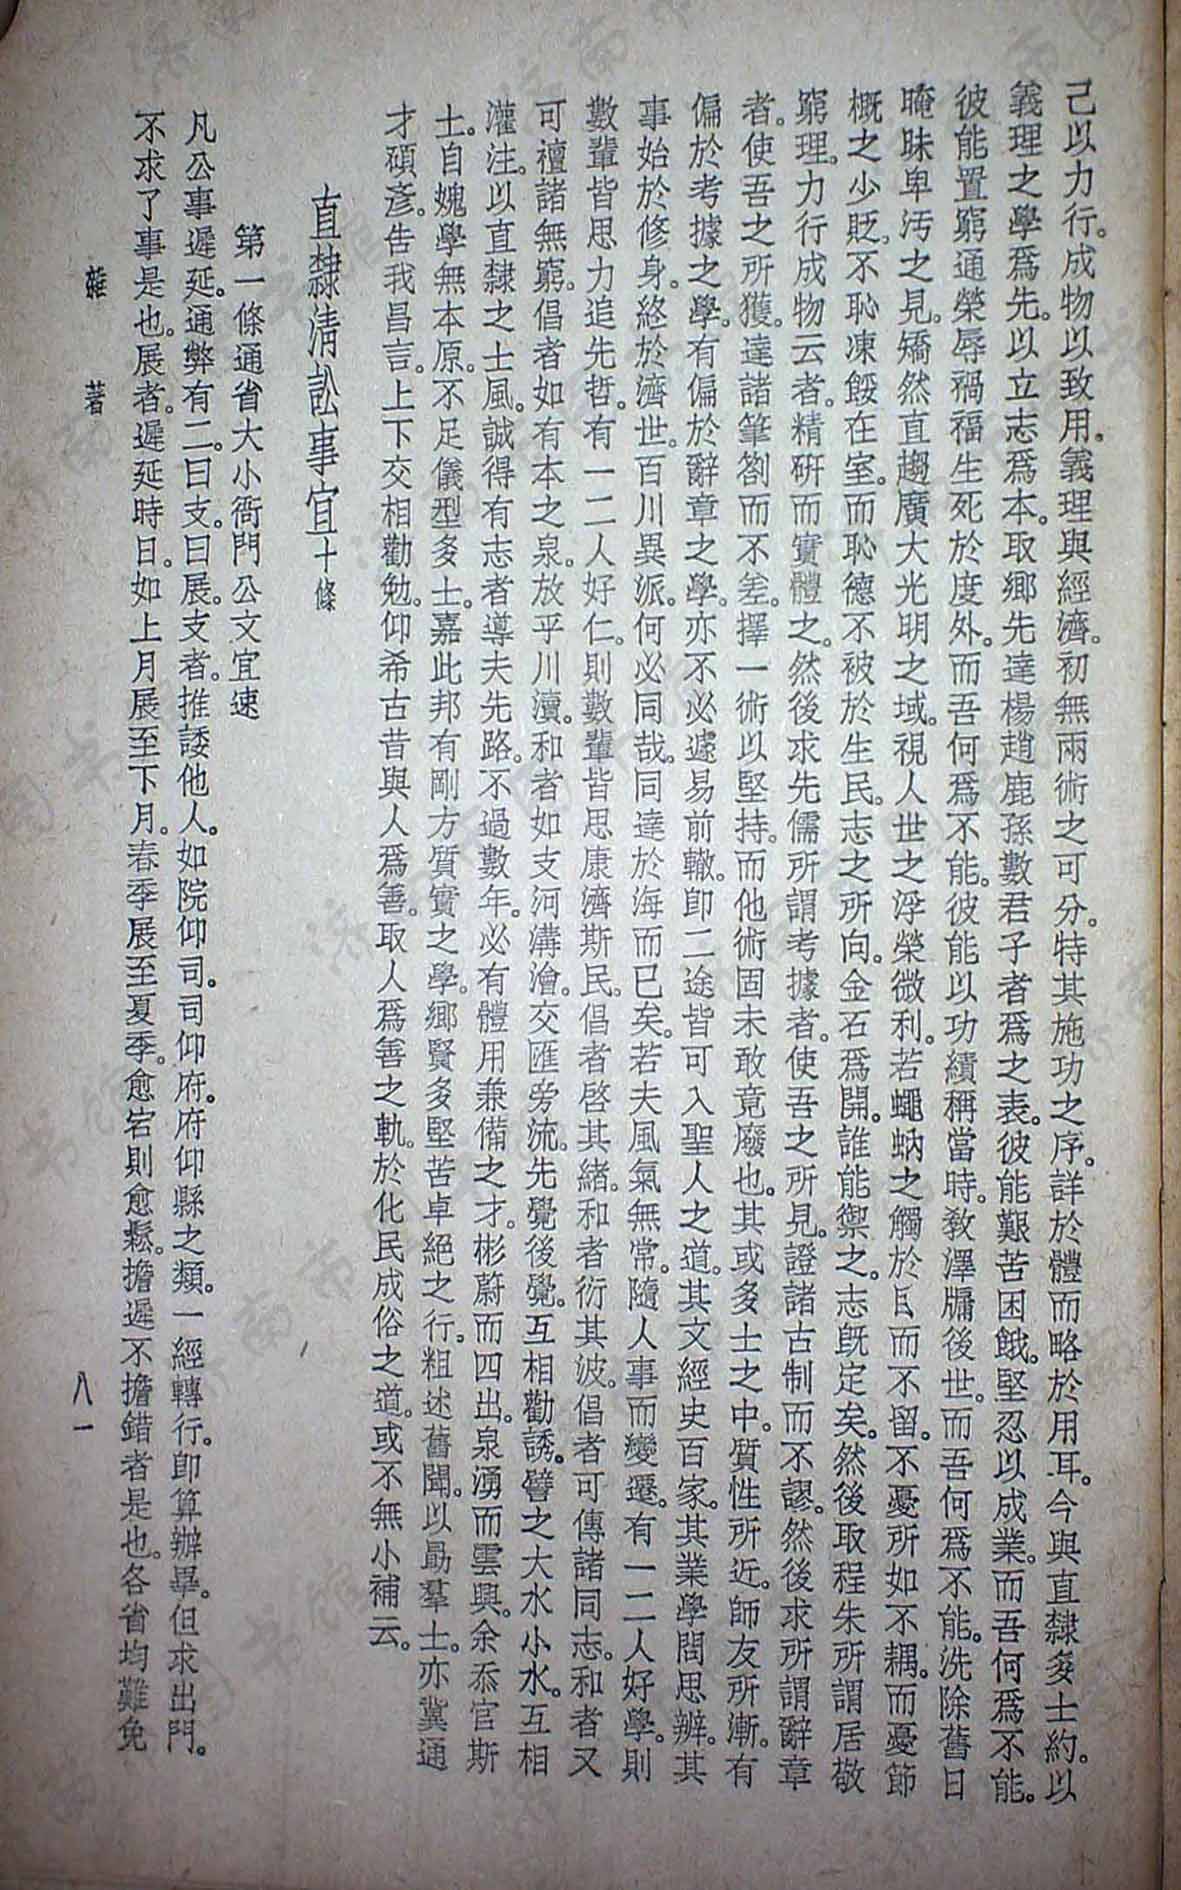 己以力行。成物以致用。義理與經濟。初無兩術之可分。特其施功之序。詳於體而略於用耳。今與直隸多士約。以
義理之學爲先。以立志爲本。取鄉先達楊趙鹿孫數君子者爲之表。彼能艱苦困餓。堅忍以成業。而吾何爲不能。
彼能置窮通榮辱禍福生死於度外。而吾何爲不能。彼能以功績稱當時。教澤牖後世。而吾何爲不能。洗除舊日
晻昧卑汚之見。矯然直趨廣大光明之域。視人世之浮榮微利。若蠅蚋之觸於目而不留。不憂所如不耦。而憂節
概之少貶。不恥凍餒在室。而恥德不被於生民。志之所向。金石爲開。誰能禦之。志既定矣。然後取程朱所謂居敬
窮理。力行成物云者。精研而實體之。然後求先儒所謂考據者。使吾之所見。證諸古制而不謬。然後求所謂辭章
者。使吾之所獲。達諸筆劄而不差。擇一術以堅持。而他術固未敢竟廢也。其或多士之中。質性所近。師友所漸。有
偏於考據之學。有偏於辭章之學。亦不必遽易前轍。卽二途皆可入聖人之道。其文經史百家。其業學問思辨。其
事始於修身。終於濟世。百川異派。何必同哉。同達於海而已矣。若夫風氣無常。隨人事而變遷。有一二人好學。則
數輩皆思力追先哲。有一二人好仁。則數輩皆思康濟斯民。倡者啓其緒。和者衍其波。倡者可傳諸同志。和者又
可禪諸無窮。倡者如有本之泉。放乎川瀆。和者如支河溝澮。交匯旁流。先覺後覺。互相勸誘。譬之大水小水。互相
灌注。以直隸之士風。誠得有志者導夫先路。不過數年。必有體用兼備之才。彬蔚而四出。泉湧而雲興。余忝官斯
土。自媿學無本原。不足儀型多士。嘉此邦有剛方質實之學。鄉賢多堅苦卓絕之行。粗述舊聞。以勗羣士。亦冀通
才碩彥。告我昌言。上下交相勸勉。仰希古昔與人爲善。取人爲善之軌。於化民成俗之道。或不無小補云。
直隸淸訟事宜十條
第一條通省大小衙門公文宜速
凡公事遲延。通弊有二。曰支。曰展。支者。推諉他人。如院仰司。司仰府。府仰縣之類。一經轉行。卽算辦畢。但求出門。
不求了事是也。展者。遲延時日。如上月展至下月。春季展至夏季。愈宕則愈鬆。擔遲不擔錯者是也。各省均難免
雜著
八一